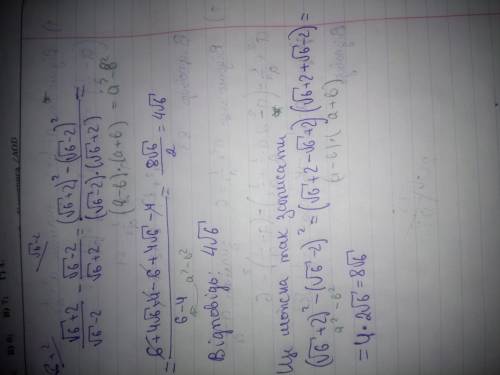 (√6+2)/(√6-2) - (√6-2)/(√6+2) = ((√6+2)² - (√6-2)²)/((√6-2)·(√6+2)) =
(a-b)·(a+b) = a²-b²
= (6+4√6+4-6+4√6-4)/(6-4) = 8√6/2 = 4√6
a²-b²
Відповідь: 4√6
Це можна так записати
(√6+2)²-(√6-2)² = (√6+2-√6+2)(√6+2+√6-2) =
a²-b² (a-b)·(a+b)
= 4·2√6 = 8√6